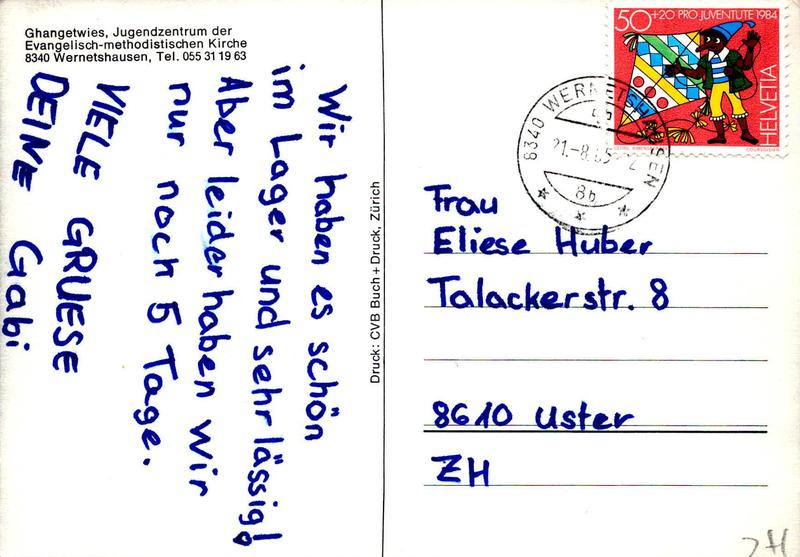 Ghangetwies, Jugendzentrum der
Evangelisch-methodistischen Kirche
8340 Wernetshausen, Tel. 055 31 19 63
Wir haben es schön
im Lager und sehr lässig!
Aber leider haben wir
nur noch 5 Tage.
VIELE GRUESE
DEINE Gabi
Druck: CVB Buch + Druck, Zürich
50+20 PRO JUVENTUTE 1984
HELVETIA
COURVOISIER
8340 WERNETSHAUSEN
21.-8.85
8b
Frau
Eliese Huber
Talackerstr. 8
8610 Uster
ZH
ZH